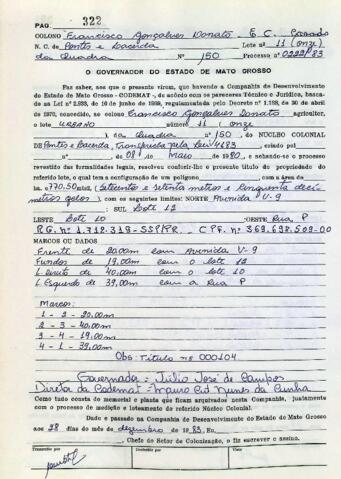 PAG. 322
COLONO Francisco Gonçalves Donato E. C. Casado
N. C. de Pontes e Lacerda Lote nº 11 (onze)
da Quadra Nº 150 Processo nº 0222/83
O GOVERNADOR DO ESTADO DE MATO GROSSO
Faz saber, aos que a presente virem, que havendo a Companhia de Desenvolvimento
do Estado de Mato Grosso - CODEMAT -, de acôrdo com os pareceres Técnico e Jurídico, basea-
da na Lei nº 2.023, de 16 de junho de , regulamentada pelo Decreto nº 1.138, de 30 de abril
de 1970, concedido, ao colono Francisco Gonçalves Donato agricultor,
o lote URBANO número 11 (onze
) da Quadra nº 150, DO NÚCLEO COLONIAL
DE Pontes e Lacerda, Transferida pela Lei 4683 criado por
nº de 08 maio de 1980, e achando-se o processo
revestido das formalidades legais, resolveu conferir-lhe o presente título de propriedade do
referido lote, o qual tem a configuração de um polígono com a área de
ha. 0770.50 mts2, (Setecentos e setenta metros e cinquenta decí-
metros ), com os seguintes limites: NORTE Avenida V-9
; SUL Lote 12
LESTE Lote 10 OESTE Rua P
R.G. nº 1.712.319-SSP/PR. C.P.F. nº 369.698.509-00
MARCOS OU DADOS
Frente de 20.00m com Avenida V-9
Fundos de 19.00m com o lote 12
L. Direito de 40.00m com o lote 10
L. Esquerdo de 39.00m com a Rua P
Marcos:
1 - 2 - 20.00m
2 - 3 - 40.00m
3 - 4 - 19.00m
4 - 1 - 39.00m
Obs: Título nº 000104
Governador: Júlio José de Campos
Diretor da Codemat - Mauro Cid Nunes da Cunha
Como tudo consta do memorial e planta que ficam arquivados nesta Companhia, juntamente
com o processo de medição e loteamento do referido Núcleo Colonial.
Dado e passado na Companhia de Desenvolvimento do Estado de Mato Grosso
aos 28 dias do mês de dezembro de 1983. Eu,
, Chefe do Setor de Colonização, o fiz escrever e assino.
Transcrito por Conferido por Visto